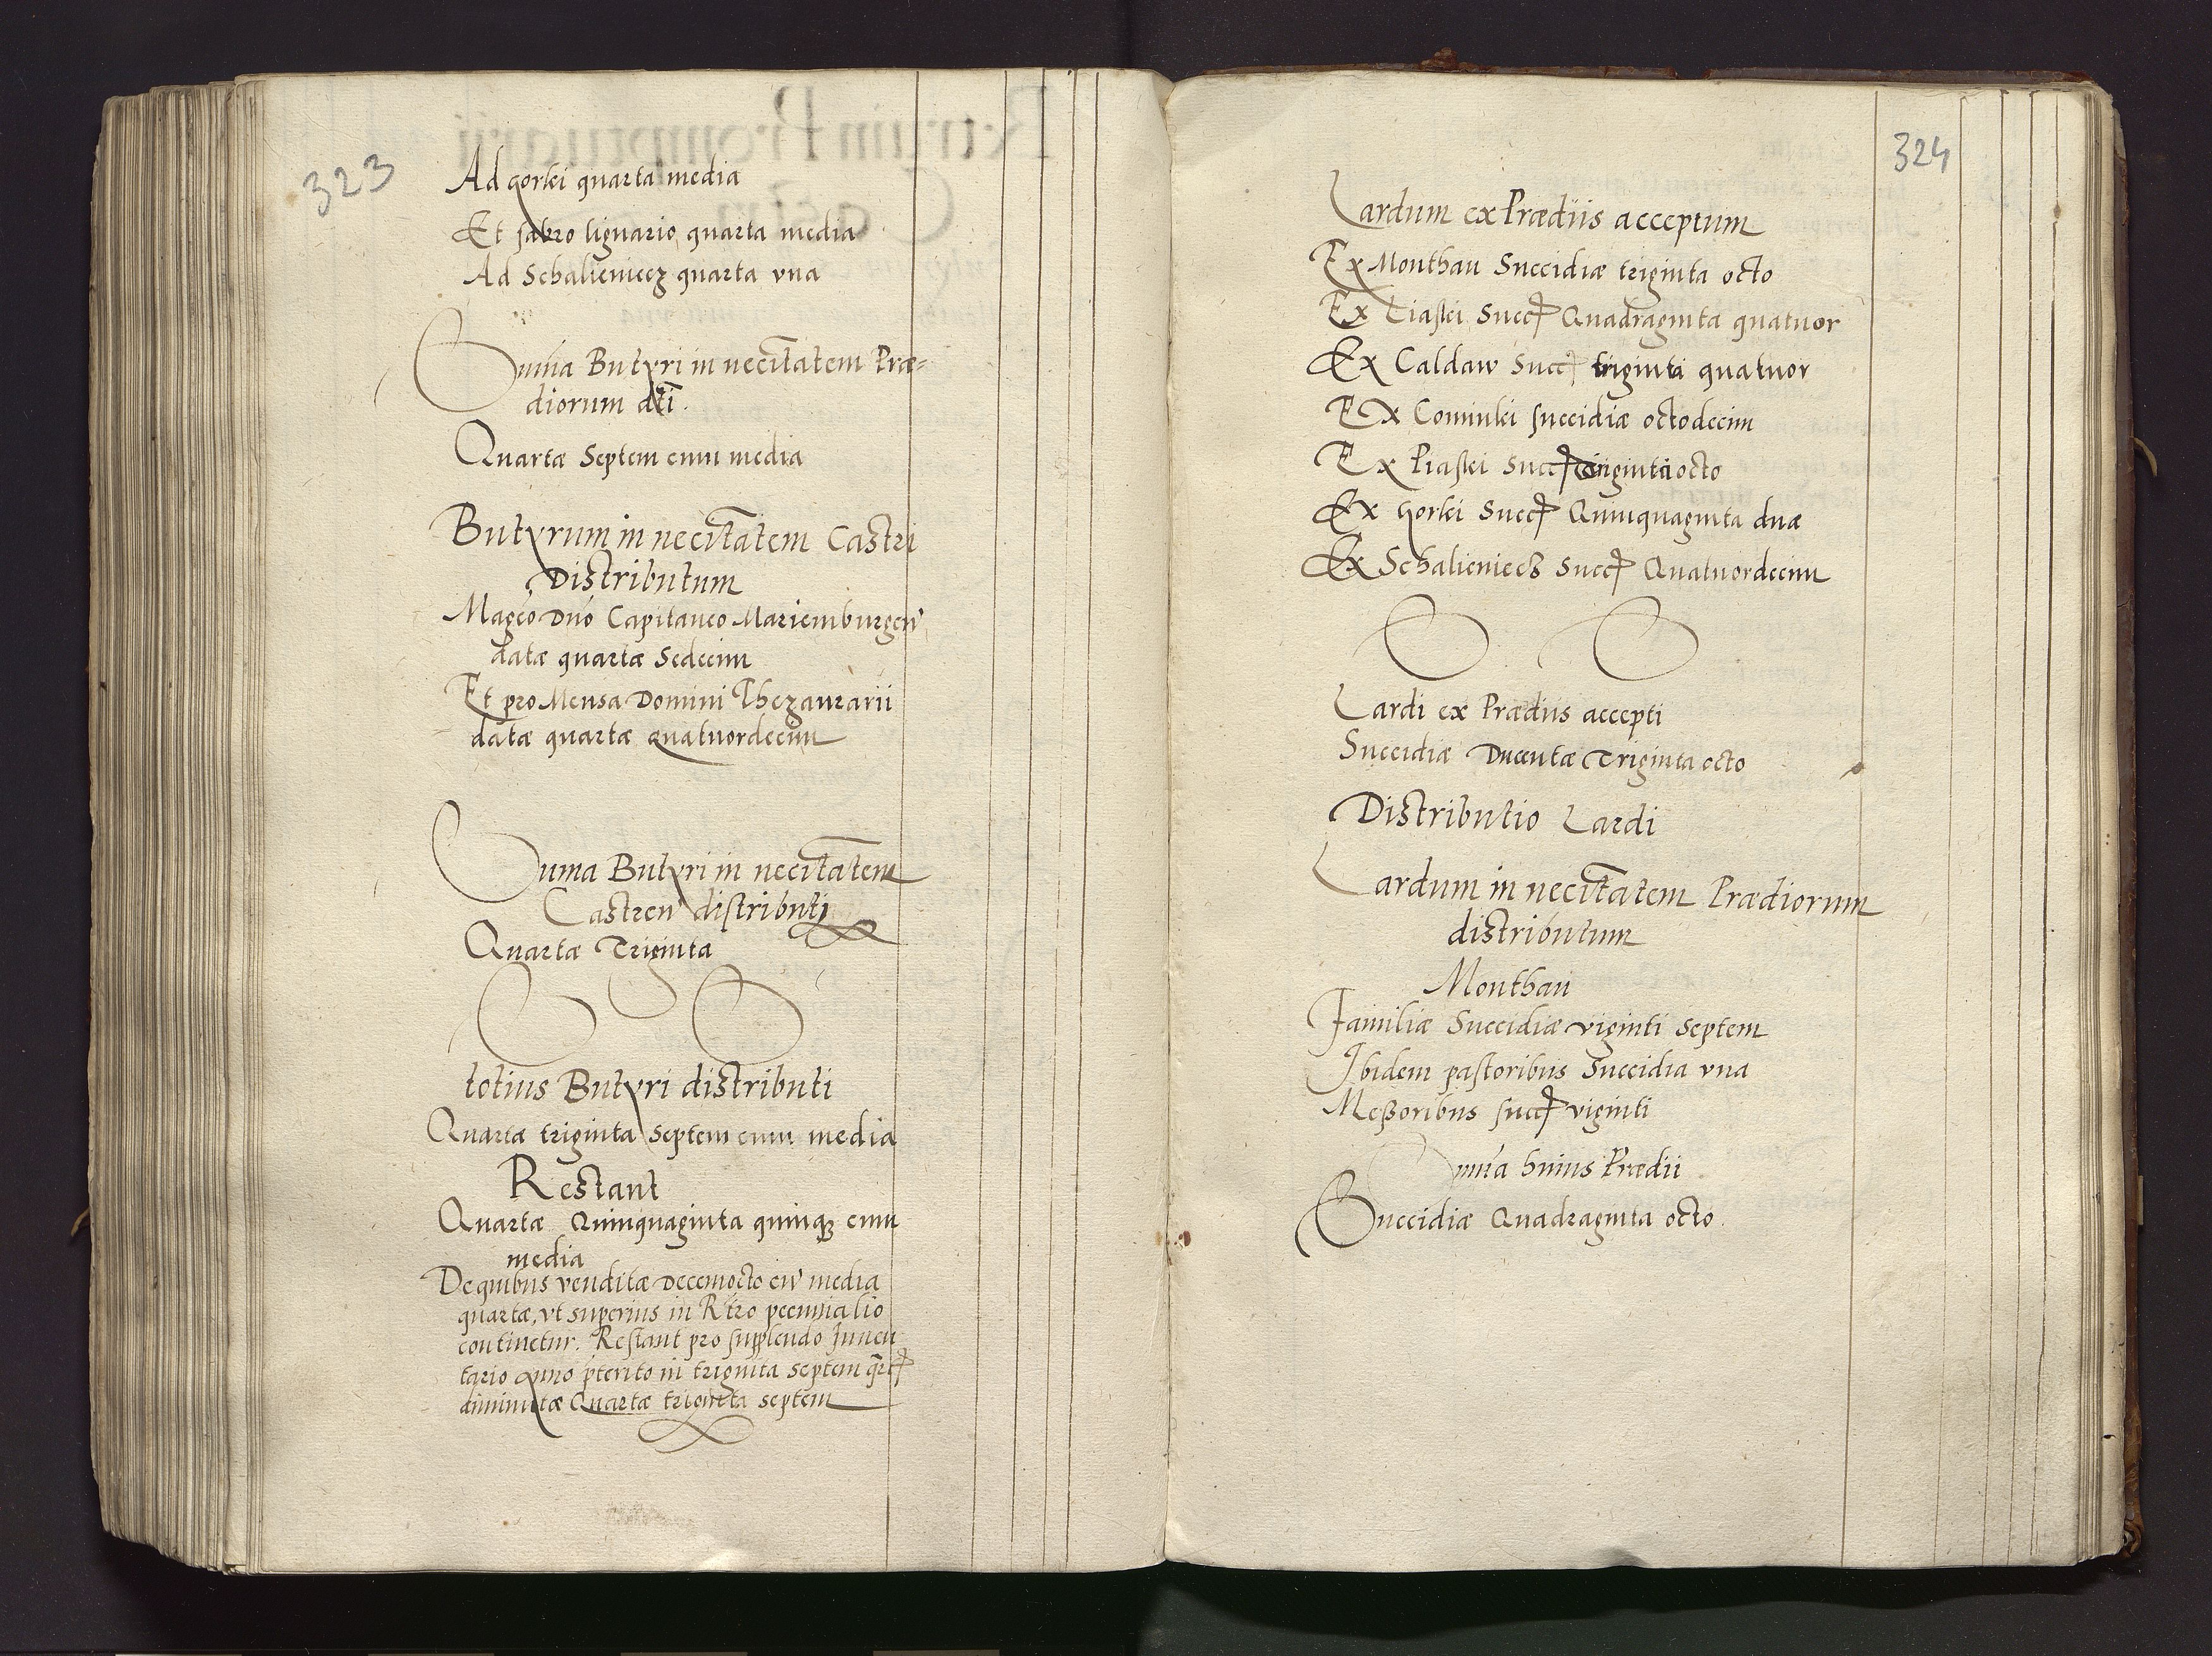 323
Ad Gorki quarta media
Et fabro lignario quarta media
Ad Schalieniecz quarta vna
Suma Butyri in necitatem Præ-
diorum dti.
Quartæ Septem cum media
Butyrum in necitatem Castri
Distributum
Magco Dno Capitaneo Mariemburgen
datæ quartæ Sedecim
Et pro Mensa Domini Thezaurarii
datæ quartæ quatuordecim
Suma Butyri in necitatem
Castren distributi
Quartæ Triginta
totius Butyri distributi
Quartæ triginta Septem cum media
Restant
Quartæ Quinquaginta quinqȝ cum
media
De quibus venditæ Decemocto cu media
quartæ, vt superius in Rtro pecuniali
continetur. Restant pro supplendo Inuen
tario anno pterito in triginta septem qrt
diminutæ Quartæ triginta septem
324
Lardum ex Prædiis acceptum
Ex Monthau Succidiæ triginta octo
Ex Liaski Succ Quadraginta quatuor
Ex Caldaw Succ triginta quatuor
Ex Cominki succidiæ octodecim
Ex Piaski Succ triginta octo
Ex Gorki Succ Quinquaginta duæ
Ex Schalieniecz Succ Quatuordecim
Lardi ex Prædiis accepti
Succidiæ Ducentæ Triginta octo
Distributio Lardi
Lardum in necitatem Prædiorum
distributum
Monthau
Familiæ Succidiæ viginti septem
Ibidem pastoribus Succidia vna
Meßoribus succ viginti
Suma huius Prædii
Succidiæ Quadraginta octo.